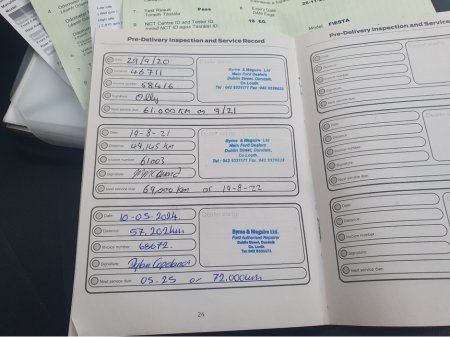 7 Test Result Pass
NCT Centre ID and Tester ID
MODEL FIESTA
Pre-Delivery Inspection and Service Record
Pre-Delivery Inspection and Service
Date: 29/9/20
Distance: 46711
Invoice number 58416
Signature Olly
Next service due: 61,000km or 9/21
Byrne & Maguire Ltd
Main Ford Dealers
Dublin Street, Dundalk,
Co Louth.
Date: 19-8-21
Distance: 49,145 km
Invoice number 61003
Signature:
Next service due: 69,000km or 19-8-22
Byrne & Maguire Ltd
Main Ford Dealers
Dublin Street, Dundalk,
Co Louth.
Date: 10-05-2024.
Distance: 57,202km
Invoice number 68672.
Signature: Dylan
Next service due: 05-25 or 72,000km
Dealer stamp
Byrne & Maguire Ltd.
Ford Authorised Repairer
Dublin Street, Dundalk
Co. Louth
24
Date:
Distance:
Invoice number
Signature:
Next service due:
Date:
Distance:
Invoice number
Signature:
Next service due:
Date:
Distance:
Invoice number
Signature:
Next service due